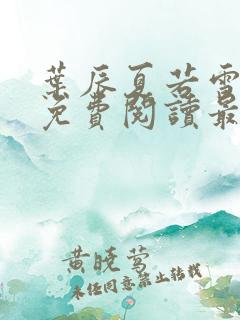 葉辰夏若雪
免費閱讀最
黄晓莺
未经同意禁止转载